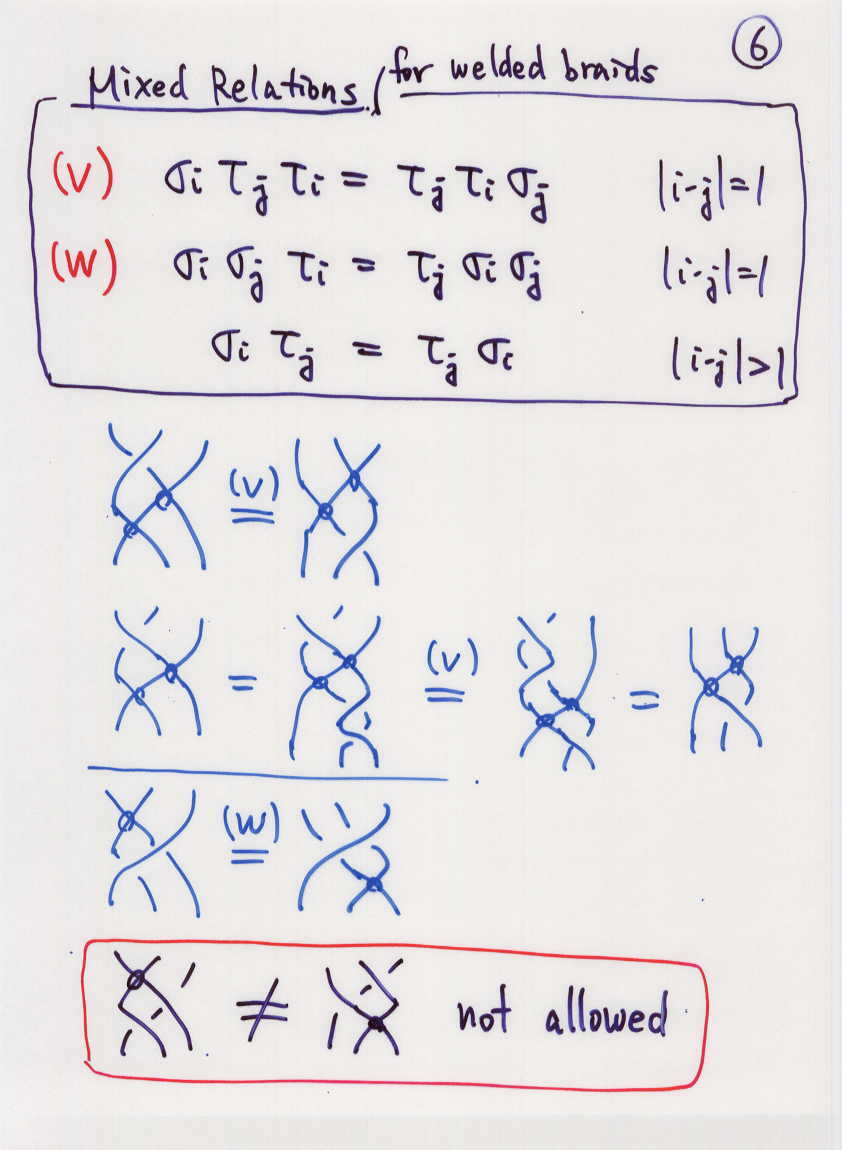 6
Mixed Relations for welded braids
(V) σi τj τi = τj τi σj |i-j|=1
(W) σi σj τi = τj σi σj |i-j|=1
σi τj = τj σi |i-j|>1
(V)
=
= (V) = =
(W)
=
≠ not allowed